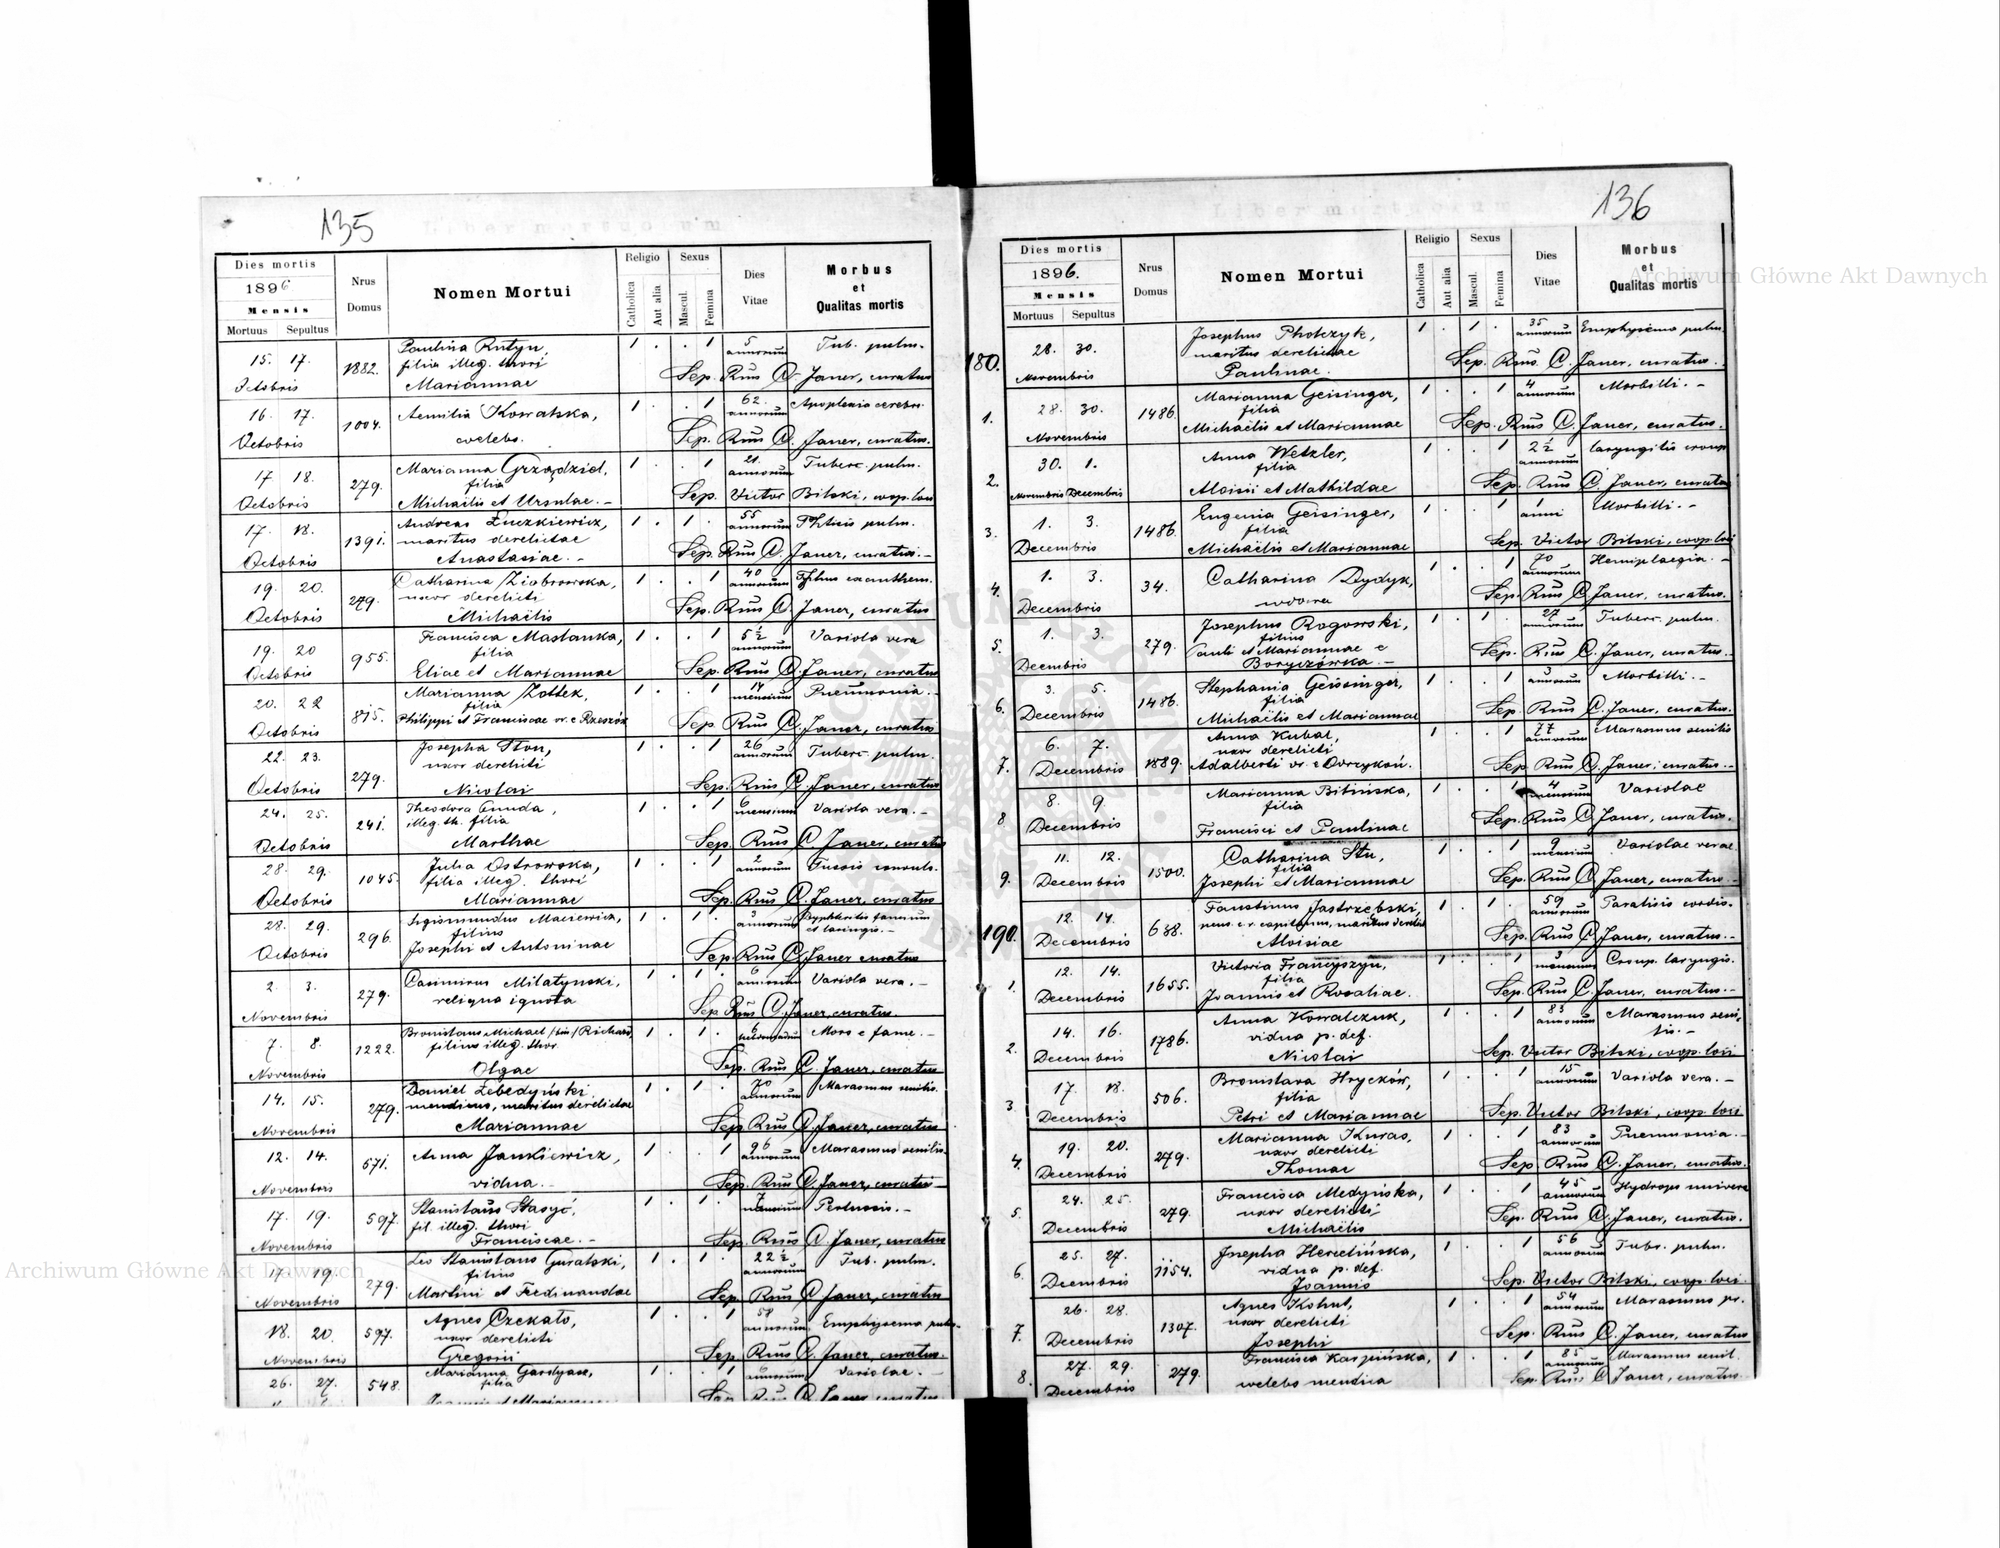 135
Liber mortuorum
Dies mortis
1896
Mensis
Mortuus Sepultus
Nrus Domus
Nomen Mortui
Religio
Catholica
Aut alia
Sexus
Mascul.
Femina
Dies Vitae
Morbus et Qualitas mortis
15. 17. Octobris 1882. Paulina Rutyn, 1 . . 1 5 annorum Tub. pulm.
filia illeg. thori
Mariannae Sep. Rmus C. Janer, curatus
16. 17. Octobris 1004. Aemilia Kowalska, 1 . . 1 62. annorum Apoplexia cerebri.
coelebs. Sep. Rmus C. Janer, curatus.
17. 18. Octobris 279. Marianna Grządziel, 1 . . 1 21. annorum Tuberc. pulm.
filia
Michaëlis et Ursulae. - Sep. Victor Bilski, coop. loci
17. 18. Octobris 1391. Andreas Łuczkiewicz, 1 . 1 . 55 annorum Phtisis pulm.
maritus derelictae
Anastasiae. - Sep. Rmus C. Janer, curatus. -
19. 20. Octobris 279. Catharina Ziobrowska, 1 . . 1 40 annorum Typhus exanthem.
uxor derelicti
Michaëlis Sep. Rmus C. Janer, curatus
19. 20 Octobris 955. Francisca Maslanka, 1 . . 1 5 ½ annorum Variola vera
filia
Eliae et Mariannae Sep. Rmus C. Janer, curatus
20. 22 Octobris 815. Marianna Zottek, 1 . . 1 14 mensium Pneumonia. -
filia
Philippi et Franciscae or. e Rzeszów Sep. Rmus C. Janer, curatus
22. 23. Octobris 279. Josepha Ston, 1 . . 1 26 annorum Tuberc. pulm.
uxor derelicti
Nicolai Sep. Rmus C. Janer, curatus
24. 25. Octobris 241. Theodora 1 . . 1 6 mensium Variola vera. -
illeg. th. filia
Marthae Sep. Rmus C. Janer, curatus
28. 29. Octobris 1045. Julia Ostrowska, 1 . . 1 2 annorum Tussis convuls.
filia illeg. thori
Mariannae Sep. Rmus C. Janer, curatus
28. 29. Octobris 296. Sigismundus Maciewicz, 1 . 1 . 3 annorum Dyphteritis faucium et laringis. -
filius
Josephi et Antoninae Sep. Rmus C. Janer curatus
2. 3. Novembris 279. Casimirus Milatynski, 1 . 1 . 6 annorum Variola vera. -
reliqua ignota Sep. Rmus C. Janer, curatus.
7. 8. Novembris 1222. Bronislaus Michael /bin/ Richard, 1 . 1 . 6 hebdomadum Mors e fame. -
filius illeg. thor.
Olgae Sep. Rmus C. Janer, curatus
14. 15. Novembris 279. Daniel Lebedyński 1 . 1 . 70 annorum Marasmus senilis.
mendicus, maritus derelictae
Mariannae Sep. Rmus C. Janer, curatus
12. 14. Novembris 671. Anna Jankiewicz, 1 . . 1 96 annorum Marasmus senilis.
vidua. - Sep. Rmus C. Janer, curatus
17. 19. Novembris 597. Stanislaus Stasyć, 1 . 1 . 7 mensium Pertussis. -
fil. illeg. thori
Franciscae. - Sep. Rmus C. Janer, curatus
17. 19. Novembris 279. Leo Stanislaus Guralski, 1 . 1 . 22 ½ annorum Tub. pulm.
filius
Martini et Ferdinandae Sep. Rmus C. Janer, curatus
18. 20. Novembris 597. Agnes Czekało, 1 . . 1 58 annorum Emphysema pulm.
uxor derelicti
Gregorii Sep. Rmus C. Janer, curatus.
26. 27. 548. Marianna Gardyasz, 1 . . 1 6 annorum Variolae. -
filia
Sep. Rmus C. Janer, curatus
136
Liber mortuorum
Dies mortis
1896.
Mensis
Mortuus Sepultus
Nrus Domus
Nomen Mortui
Religio
Catholica
Aut alia
Sexus
Mascul.
Femina
Dies Vitae
Morbus et Qualitas mortis
180. 28. 30. Novembris Josephus Płotczyk, 1 . 1 . 35 annorum Emphysema pulm.
maritus derelictae
Paulinae. Sep. Rmus C. Janer, curatus.
1. 28. 30. Novembris 1486. Marianna Geisinger, 1 . . 1 4 annorum Morbilli. -
filia
Michaëlis et Mariannae Sep. Rmus C. Janer, curatus.
2. 30. 1. Novembris Decembris Anna Wetzler, 1 . . 1 2 ½ annorum laryngitis croup
filia
Aloisii et Mathildae Sep. Rmus C. Janer, curatus
3. 1. 3. Decembris 1486. Eugenia Geisinger, 1 . . 1 1 anni Morbilli. -
filia
Michaëlis et Mariannae Sep. Victor Bilski, coop. loci
4. 1. 3. Decembris 34. Catharina Dydyk, 1 . . 1 70 annorum Hemiplaegia. -
Sep. Rmus C. Janer, curatus.
5. 1. 3. Decembris 279. Josephus Rogowski, 1 . 1 . 27 annorum Tuberc. pulm.
filius
Pauli et Mariannae e
Boryczówka. - Sep. Rmus C. Janer, curatus. -
6. 3. 5. Decembris 1486. Stephania Geisinger, 1 . . 1 3 annorum Morbilli. -
filia
Michaëlis et Mariannae Sep. Rmus C. Janer, curatus.
7. 6. 7. Decembris 1889. Anna Kubal, 1 . . 1 77 annorum Marasmus senilis
uxor derelicti
Adalberti or. e Odrzykoń. Sep. Rmus C. Janer, curatus. -
8 8. 9. Decembris Marianna Bilińska, 1 . . 1 4 mensium Variolae
filia
Francisci et Paulinae Sep. Rmus C. Janer, curatus.
9. 11. 12. Decembris 1500. Catharina Stu, 1 . . 1 9 mensium Variolae verae
filia
Josephi et Mariannae Sep. Rmus C. Janer, curatus. -
190. 12. 14. Decembris 688. Faustinus Jastrzębski, 1 . 1 . 59 annorum Paralisis cordis.
pens. c. r. capitaneus, maritus derelict.
Aloisiae Sep. Rmus C. Janer, curatus. -
1. 12. 14. Decembris 1655. Victoria Franczyszyn, 1 . . 1 3 mensium Croup. laryngis.
filia
Joannis et Rosaliae. Sep. Rmus C. Janer, curatus. -
2. 14. 16. Decembris 1786. Anna Kowalczuk, 1 . . 1 83 annorum Marasmus senilis. -
vidua p. def.
Nicolai Sep. Victor Bilski, coop. loci
3. 17. 18. Decembris 506. Bronislava Hryckow, 1 . . 1 15 annorum Variola vera. -
filia
Petri et Mariannae Sep. Victor Bilski, coop. loci
4. 19. 20. Decembris 279. Marianna Kuras, 1 . . 1 83 annorum Pneumonia. -
uxor derelicti
Thomae Sep. Rmus C. Janer, curatus.
5. 24. 25. Decembris 279. Francisca Medyńska, 1 . . 1 45 annorum Hydrops univers
uxor derelicti
Michaëlis Sep. Rmus C. Janer, curatus.
6. 25. 27. Decembris 1154. Josepha Hercelińska, 1 . . 1 56 annorum Tub. pulm.
vidua p. def.
Joannis Sep. Victor Bilski, coop. loci.
7. 26. 28. Decembris 1307. Agnes Kohut, 1 . . 1 54 annorum Marasmus pr.
uxor derelicti
Josephi Sep. Rmus C. Janer, curatus
8. 27. 29. Decembris 279. Francisca Karpińska, 1 . . 1 85 annorum Marasmus senil.
coelebs mendica Sep. Rmus C. Janer, curatus.
Archiwum Główne Akt Dawnych
Archiwum Główne Akt Dawnych
ARCHIWUM GŁÓWNE AKT DAWNYCH